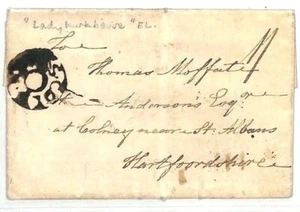 "Ladykirkhouse" EL.
To
Thomas Moffat
Anderson's Esqre
at Colney near St. Albans
Hartfoordshire